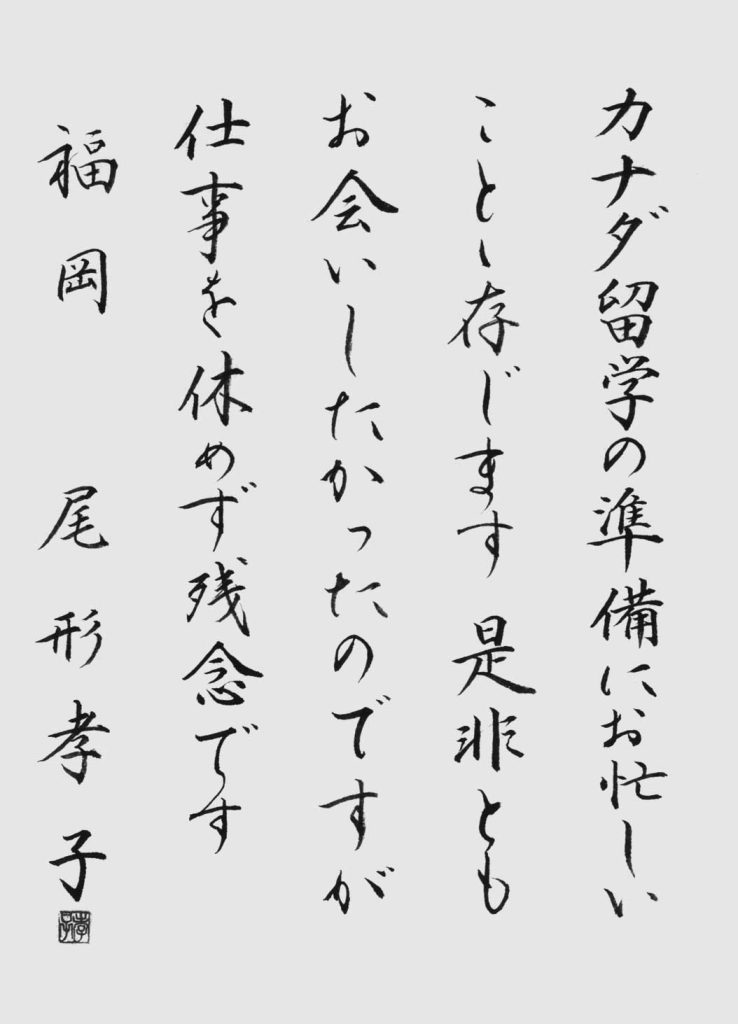 カナダ留学の準備にお忙しい
ことゝ存じます 是非とも
お会いしたかったのですが
仕事を休めず残念です
福岡 尾形孝子
孝子